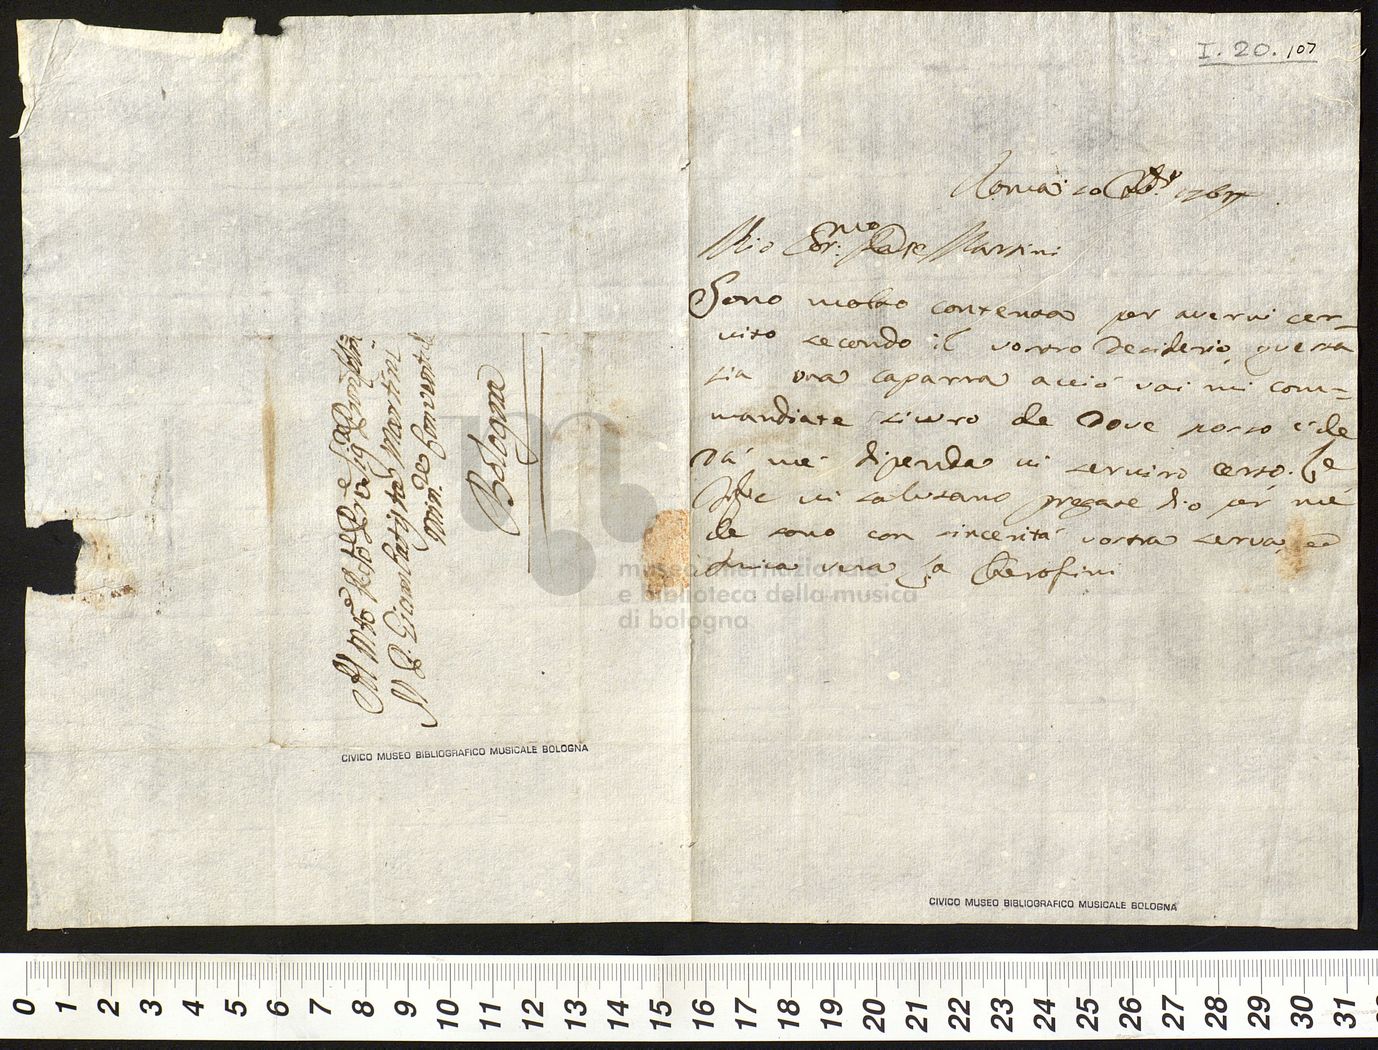 I. 20. 107
Roma 20 1767
Mio Cor.mo Padre Martini
Sono molto contenta per avervi cer-
vito secondo il vostro desiderio questa
sia una caparra acciò voi mi com-
mandiate sicuro che dove posso e che
da me dipenda vi serviro certo. Le
vi salutano pregate dio per me
che sono con sincerità vostra serva ed
amica vera la Cherofini
Bologna
Al P. Giambatista Martini
Min. Conventale
Bologna
museo internazionale
e biblioteca della musica
di bologna
CIVICO MUSEO BIBLIOGRAFICO MUSICALE BOLOGNA
CIVICO MUSEO BIBLIOGRAFICO MUSICALE BOLOGNA
0 1 2 3 4 5 6 7 8 9 10 11 12 13 14 15 16 17 18 19 20 21 22 23 24 25 26 27 28 29 30 31